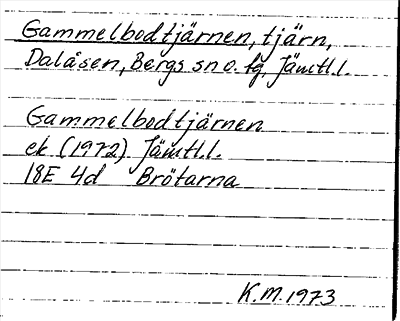 Gammelbodtjärnen, tjärn,
Dalåsen, Bergs sn o. tg, Jämtl.l.
Gammelbodtjärnen
ek (1972) Jämtl.l.
18E 4d Brötarna
K.M. 1973